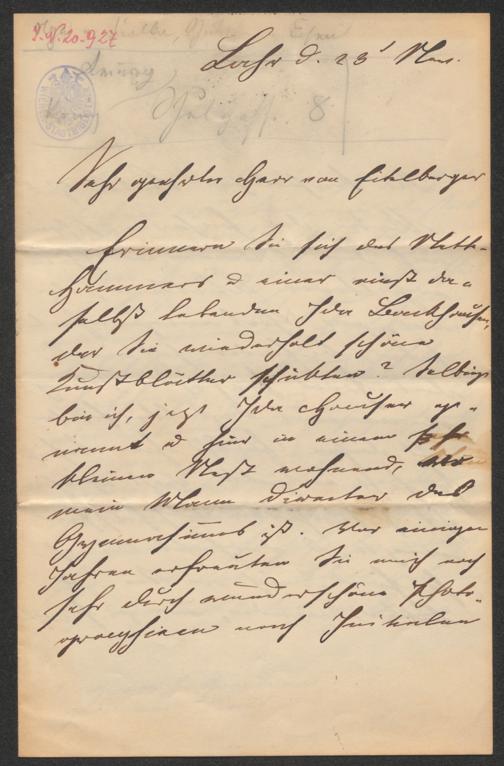 I.N. 20.927
Lahr d. 23 Nov.
Schulgasse 8
Sehr geehrter Herr von Eitelberger
Erinnern Sie sich des Nette-
Hammers & einer einst da-
selbst lebenden Ida Backhausen,
der Sie wiederholt schöne
Kunstblätter schickten? Selbige
bin ich, jezt Ida Hauser ge-
nannt & hier in einem
kleinen Nest wohnend, wo
mein Mann Director des
Gymnasiums ist. Vor einigen
Jahren erfreuten Sie mich noch
sehr durch wunderschöne Photo-
graphieen nach Initialen